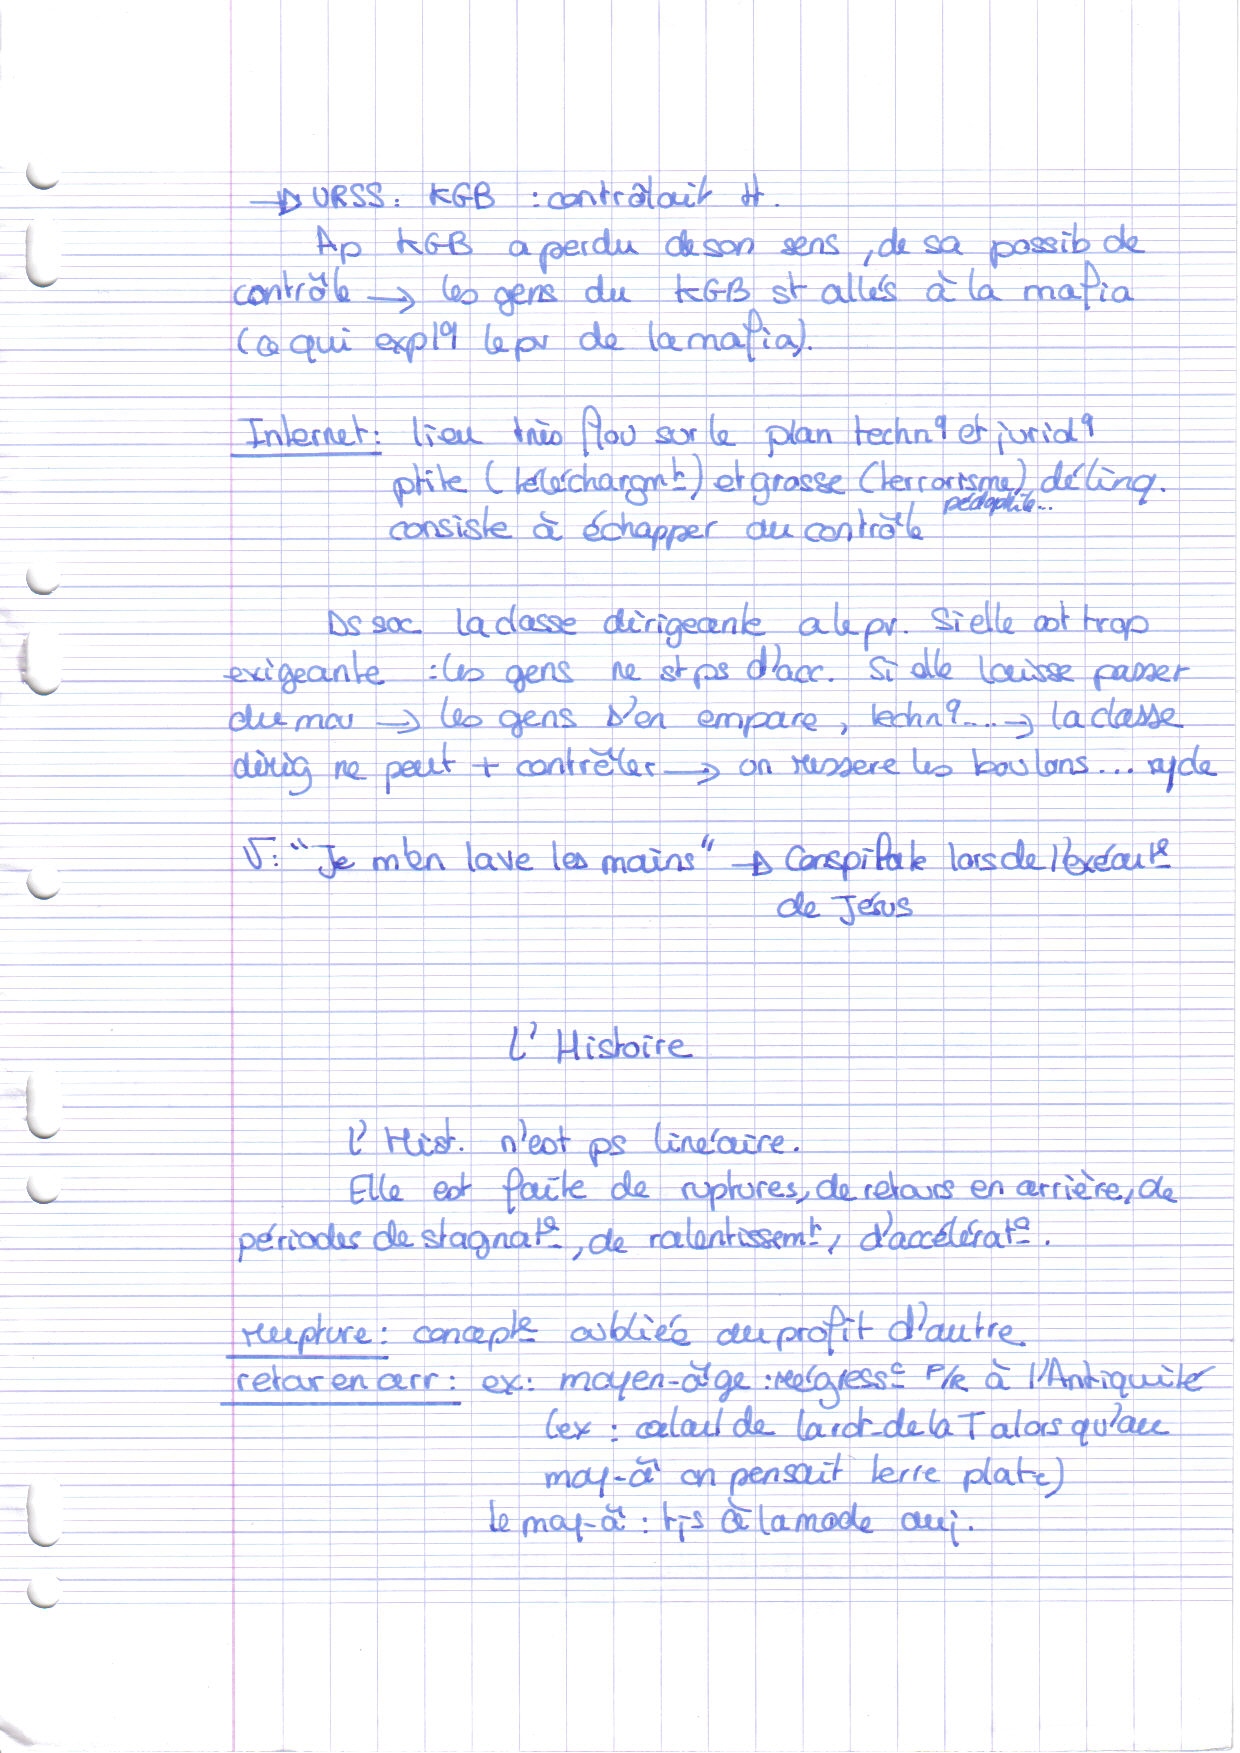 → URSS : KGB : contrôlait #.
Ap KGB a perdu de son sens, de sa possib de
contrôle → les gens du KGB st allés à la mafia
(ce qui explq le pv de la mafia).
Internet : lieu très flou sur le plan technq et juridq
ptite (téléchargmt) et grosse (terrorisme) délinq.
pédophilie...
consiste à échapper au contrôle
Ds soc. la classe dirigeante a le pv. Si elle est trop
exigeante : les gens ne st ps d'acc. Si elle laisse passer
du mou → les gens s'en empare, technq... → la classe
dirig ne peut + contrôler → on ressere les boulons... cycle
V : "Je m'en lave les mains" → Conspilate lors de l'exécuto
de Jésus
L'Histoire
L'Hist. n'est ps linéaire.
Elle est faite de ruptures, de retours en arrière, de
périodes de stagnato, de ralentissemt, d'accélérato.
rupture : concepts oubliés au profit d'autre
retour en arr : ex : moyen-âge : régresso P/R à l'Antiquité
(ex : calcul de la rot de la T alors qu'au
moy-â on pensait terre plate)
le moy-â : tjs à la mode auj.